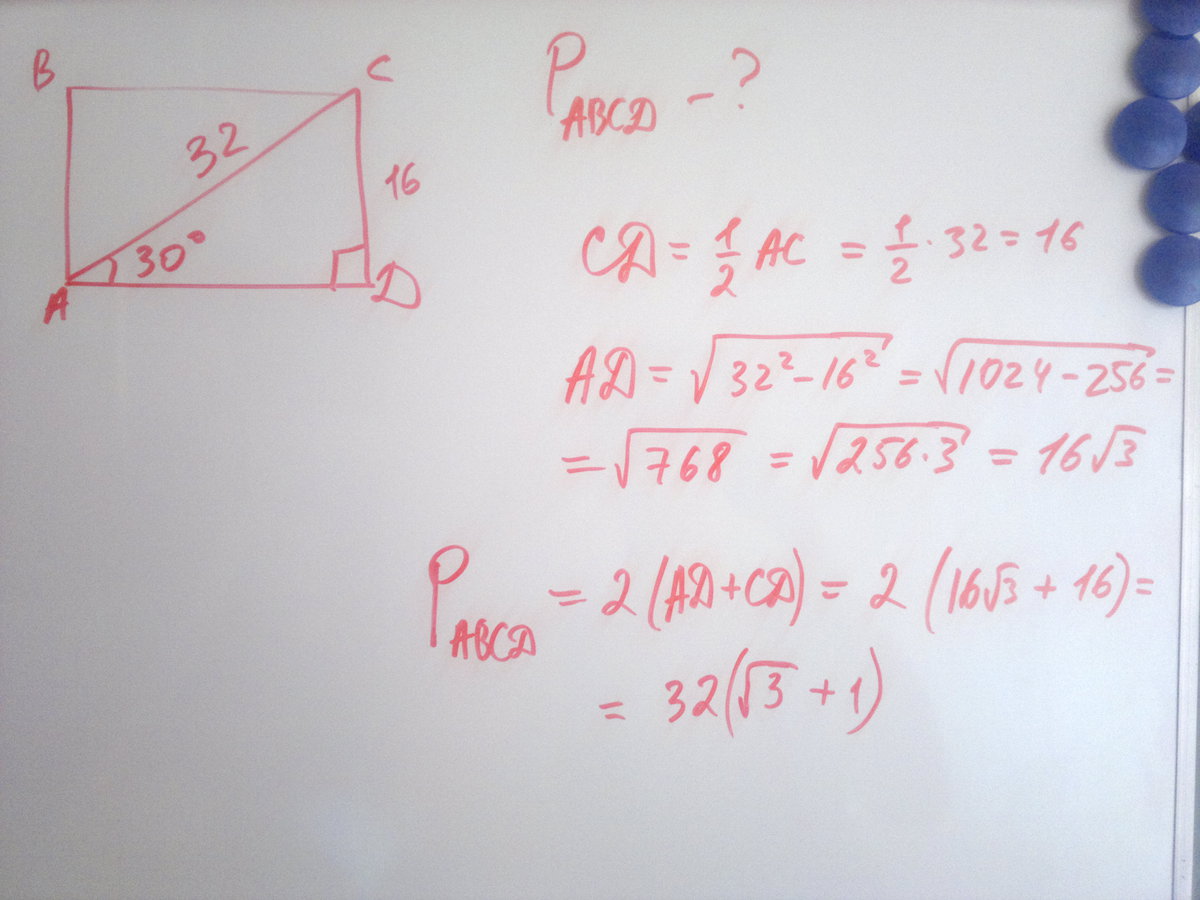 B
C
32
16
30°
A
D
P_ABCD - ?
CD = 1/2 AC = 1/2 · 32 = 16
AD = √(32² - 16²) = √(1024 - 256) =
= √768 = √(256·3) = 16√3
P_ABCD = 2 (AD + CD) = 2 (16√3 + 16) =
= 32(√3 + 1)